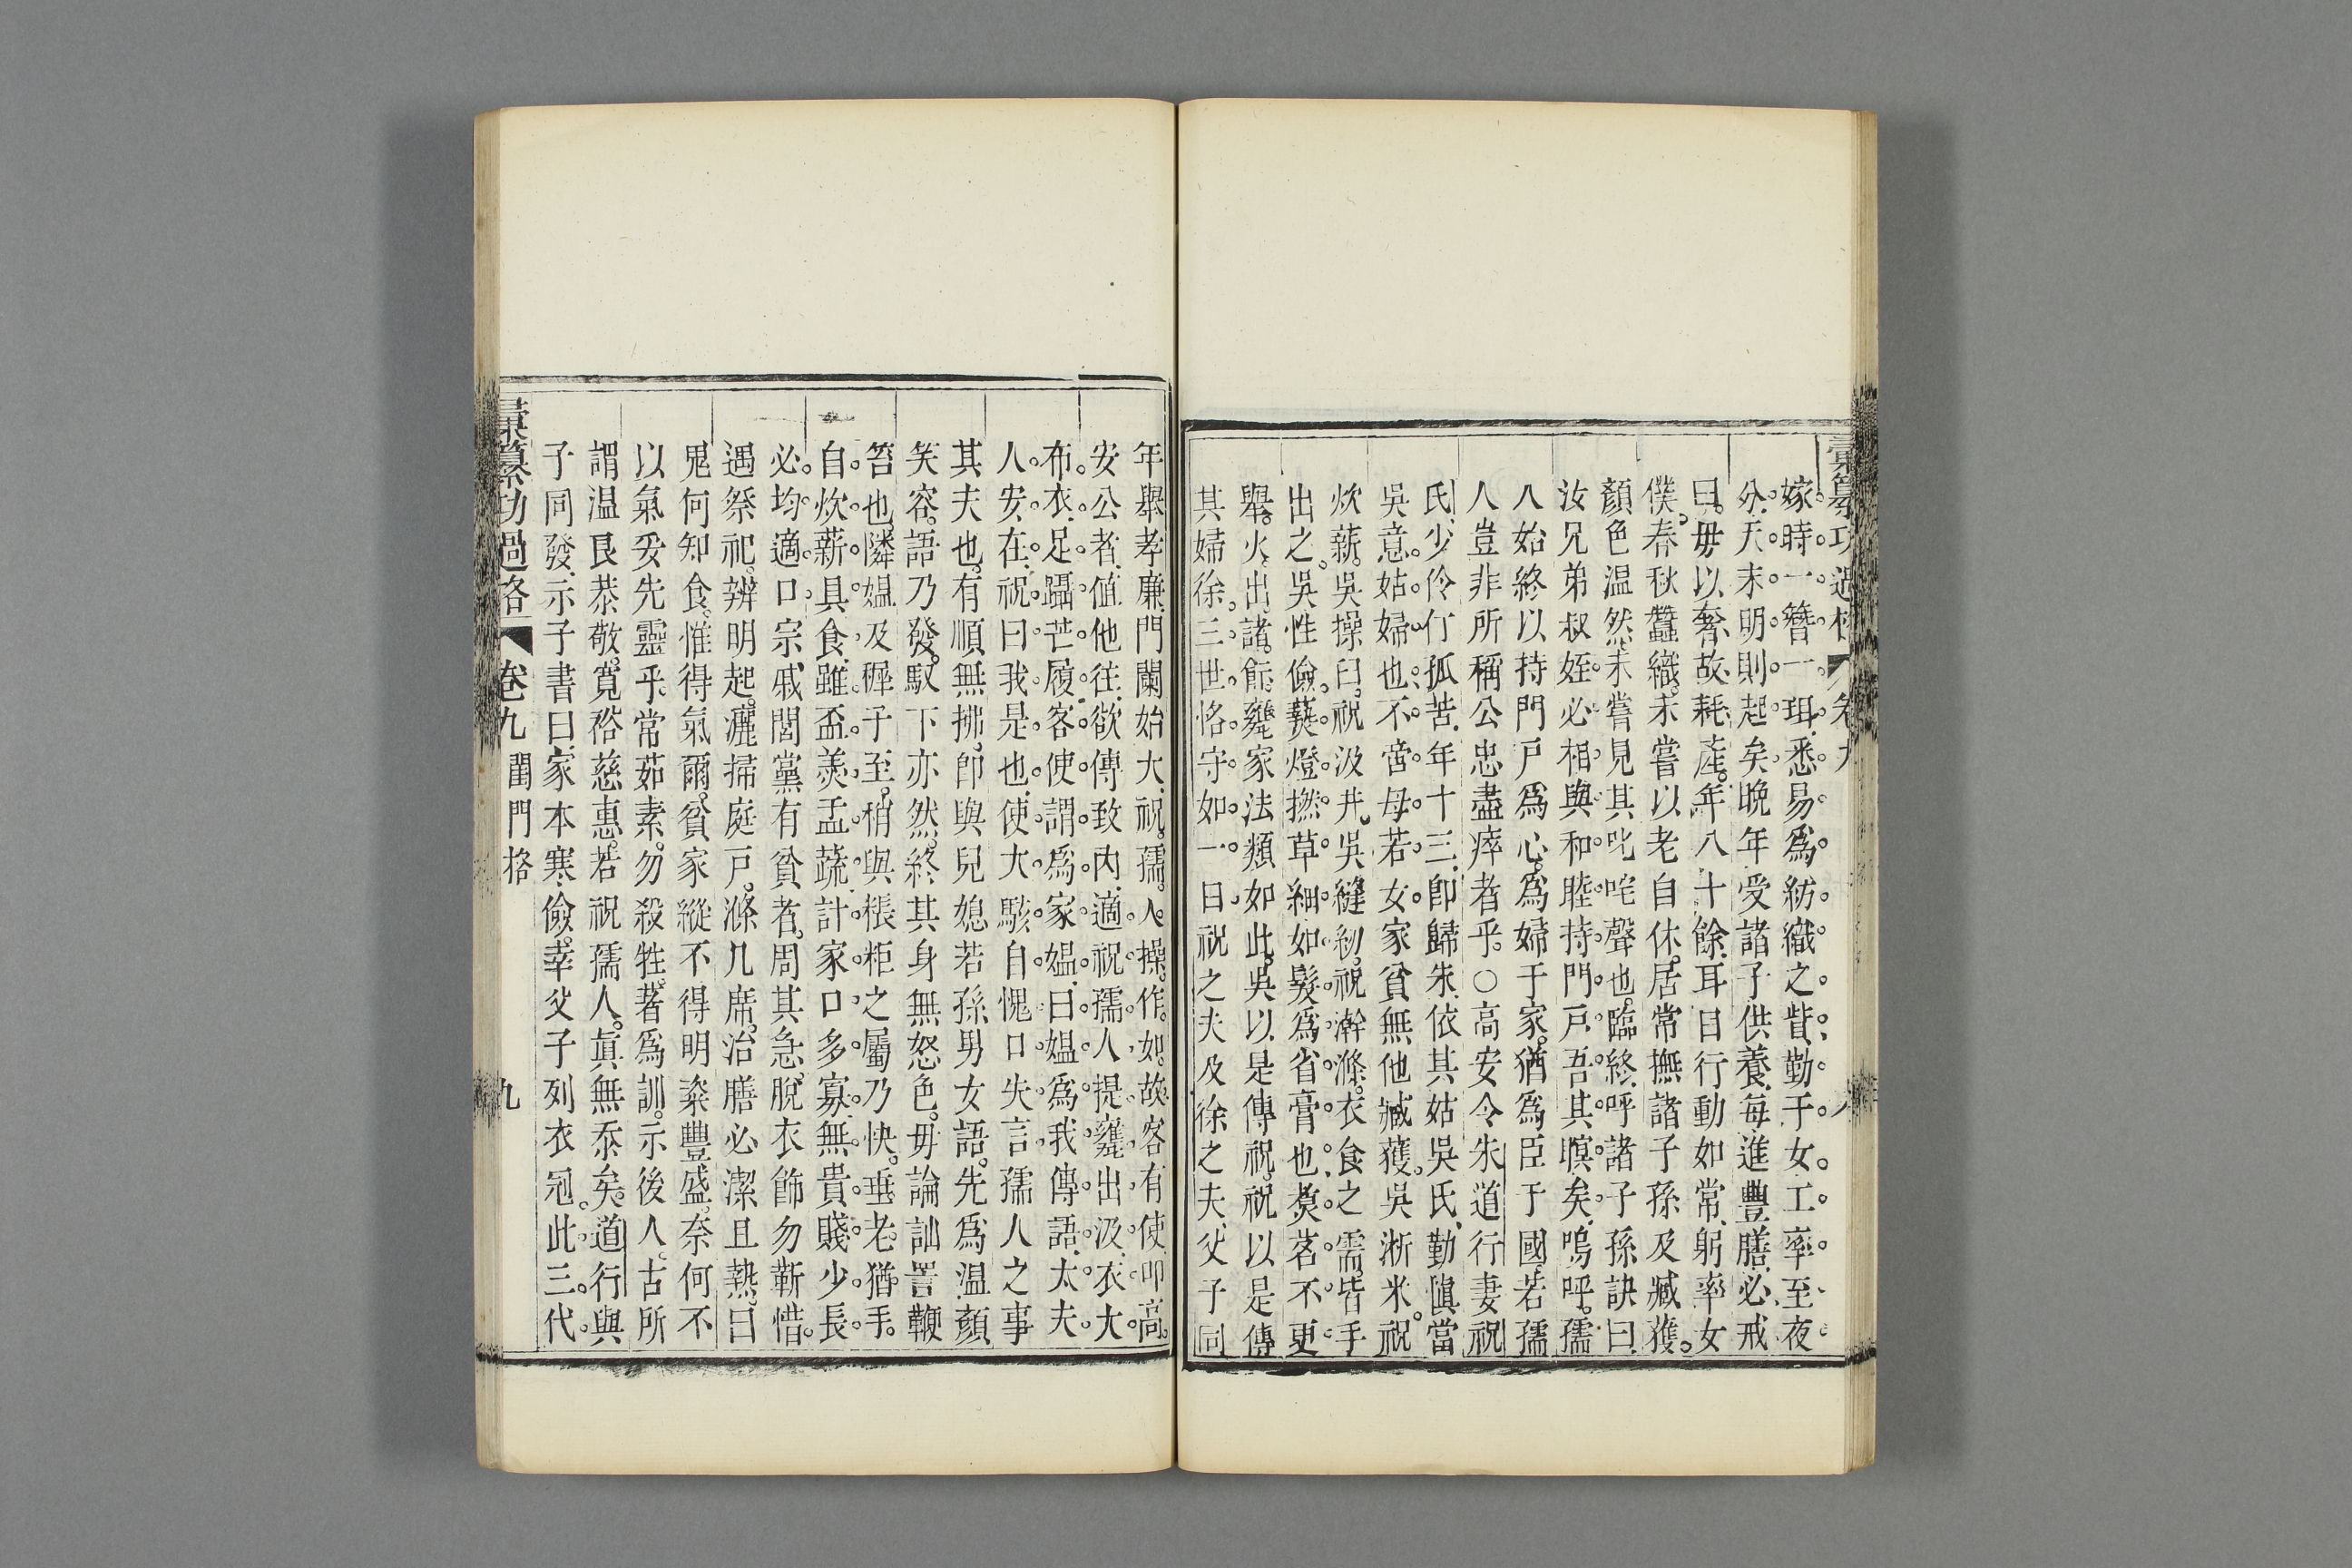 彙纂功過格 卷九
嫁時一簪一珥悉易為紡織之貲勤于女工率至夜
分天未明則起矣晚年受諸子供養每進豐膳必戒
曰毋以奢故耗產年八十餘耳目行動如常躬率女
僕春秋蠶織未嘗以老自休居常撫諸子孫及臧獲
顏色温然未嘗見其叱咤聲也臨終呼諸子孫訣曰
汝兄弟叔姪必相與和睦持門戸吾其暝矣嗚呼孺
人始終以持門戸為心為婦于家猶為臣于國若孺
人豈非所稱公忠盡瘁者乎○高安令朱道行妻祝
氏少伶仃孤苦年十三卽歸朱依其姑吳氏勤愼當
吳意姑婦也不啻母若女家貧無他臧獲吳淅米祝
炊薪吳操臼祝汲井吳縫紉祝澣滌衣食之需皆手
出之吳性儉爇燈撚草細如髮為省膏也煑茗不更
舉火出諸餁爨家法類如此吳以是傳祝祝以是傳
其婦徐三世恪守如一日祝之夫及徐之夫父子同
年舉孝廉門闌始大祝孺人操作如故客有使叩高
安公者値他往欲傳致内適祝孺人提甕出汲衣大
布衣足躡芒履客使謂為家媪曰媪為我傳語太夫
人安在祝曰我是也使大駭自愧口失言孺人之事
其夫也有順無拂卽與兒媳若孫男女語先為温顏
笑容語乃發馭下亦然終其身無怒色毋論訕詈鞭
笞也隣媪及穉子至稍與粻粔之屬乃快垂老猶手
自炊薪具食雖盃羮盂蔬計家口多寡無貴賤少長
必均適口宗戚閭黨有貧者周其急脫衣飾勿靳惜
遇祭祀辨明起灑掃庭戸滌几席治膳必潔且熱曰
鬼何知食惟得氣爾貧家縱不得明粢豐盛奈何不
以氣妥先靈乎常茹素勿殺牲著為訓示後人古所
謂温良恭敬寬裕慈惠若祝孺人眞無忝矣道行與
子同發示子書曰家本寒儉幸父子列衣冠此三代
彙纂功過格 卷九 閨門格 九